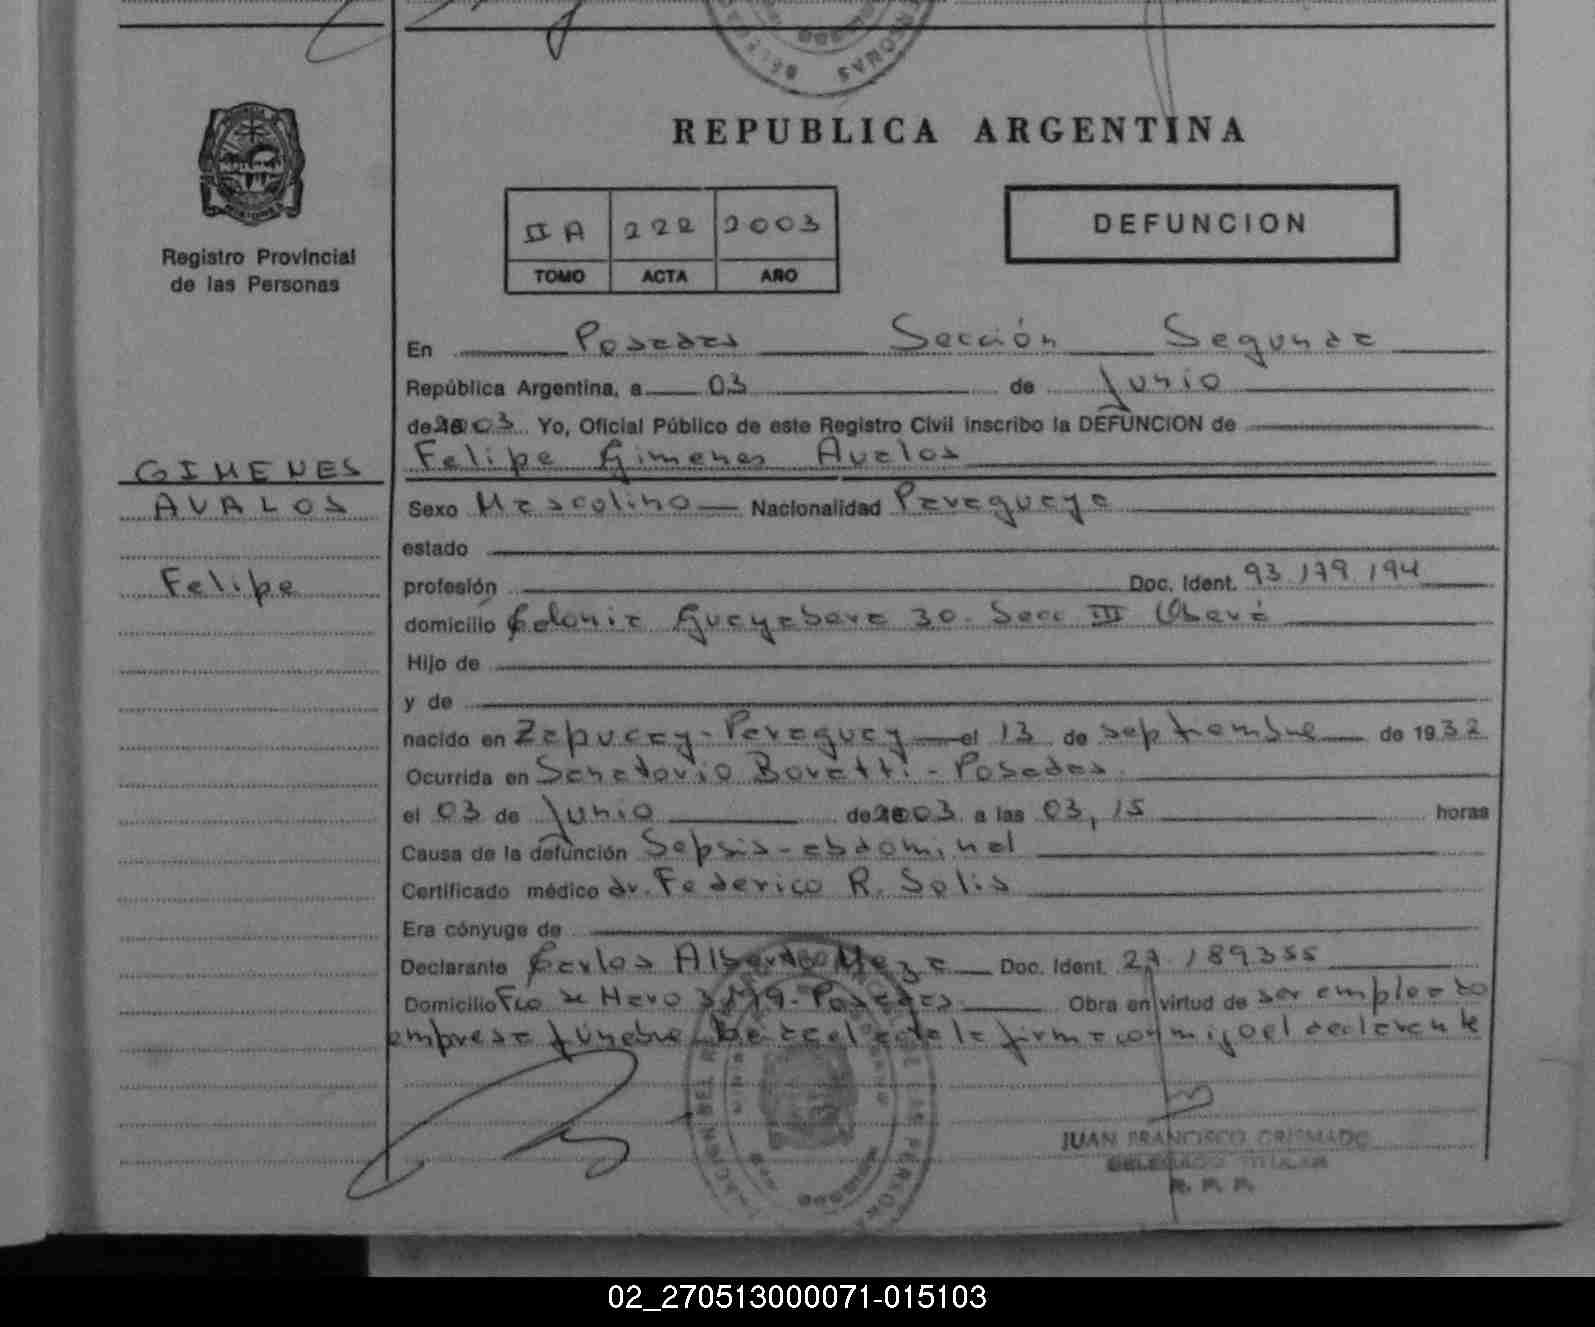 REPUBLICA ARGENTINA
Registro Provincial
de las Personas
II A 222 2003
TOMO ACTA AÑO
DEFUNCION
En Posadas Sección Segunda
República Argentina, a 03 de Junio
de 2003 Yo, Oficial Público de este Registro Civil inscribo la DEFUNCION de
GIMENES
AVALOS
Felipe
Felipe Gimenes Avalos
Sexo Masculino Nacionalidad Paraguaya
estado
profesión Doc. Ident. 93.179.194
domicilio Colonia Guayabera 30. Secc III Oberá
Hijo de
y de
nacido en Zapucay - Paraguay el 13 de septiembre de 1932
Ocurrida en Sanatorio Boratti - Posadas
el 03 de Junio de 2003 a las 03,15 horas
Causa de la defunción Sepsis - abdominal
Certificado médico dr. Federico R. Solis
Era cónyuge de
Declarante Carlos Alberto Meza Doc. Ident. 27.189355
Domicilio Fco de Haro - Posadas Obra en virtud de ser empleado
empresa fúnebre la firma conmigo el declarante
JUAN FRANCISCO CRISMADO
DELEGADO TITULAR
R. P. P.
02_270513000071-015103